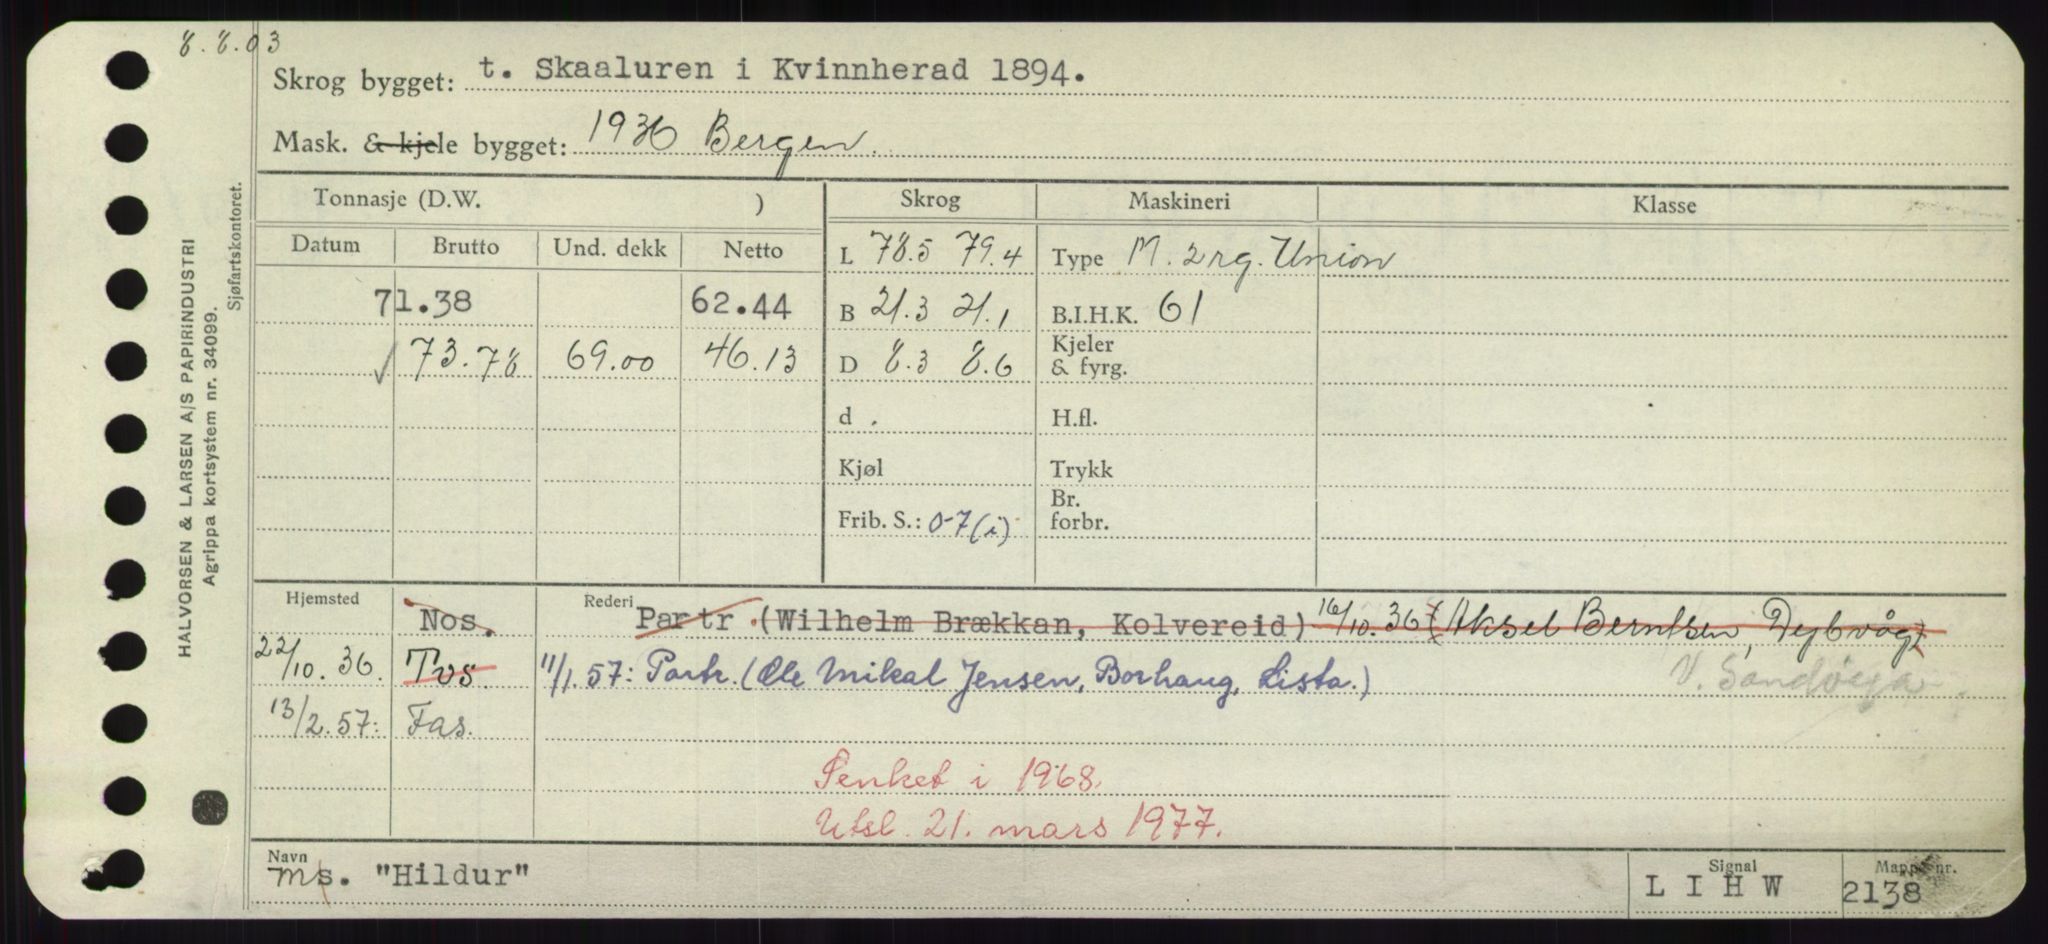 8.8.03
Skrog bygget: t. Skaaluren i Kvinnherad 1894.
Mask. & kjele bygget: 1936 Bergen.
Tonnasje (D.W. ) Skrog Maskineri Klasse
Datum Brutto Und. dekk Netto L 78.5 79.4 Type M. 2 rg. Union
71.38 62.44 B 21.3 21.1 B.I.H.K. 61
✓ 73.78 69.00 46.13 D 8.3 8.6 Kjeler & fyrg.
d . H.fl.
Kjøl Trykk
Frib. S.: 0-7 (i) Br. forbr.
Hjemsted Rederi
Nos. Partr. (Wilhelm Brækkan, Kolvereid) 16/10.36 (Aksel Berntsen, Dybvåg)
22/10.36. Tvs. 11/1.57: Partr. (Ole Mikal Jensen, Borhaug, Lista.) V. Sandøya
13/2.57: Fas.
Senket i 1968.
Utsl. 21. mars 1977.
Navn Signal Mappe nr.
m/s. "Hildur" L I H W 2138
HALVORSEN & LARSEN A/S PAPIRINDUSTRI
Agrippa kortsystem nr. 34099.
Sjøfartskontoret.